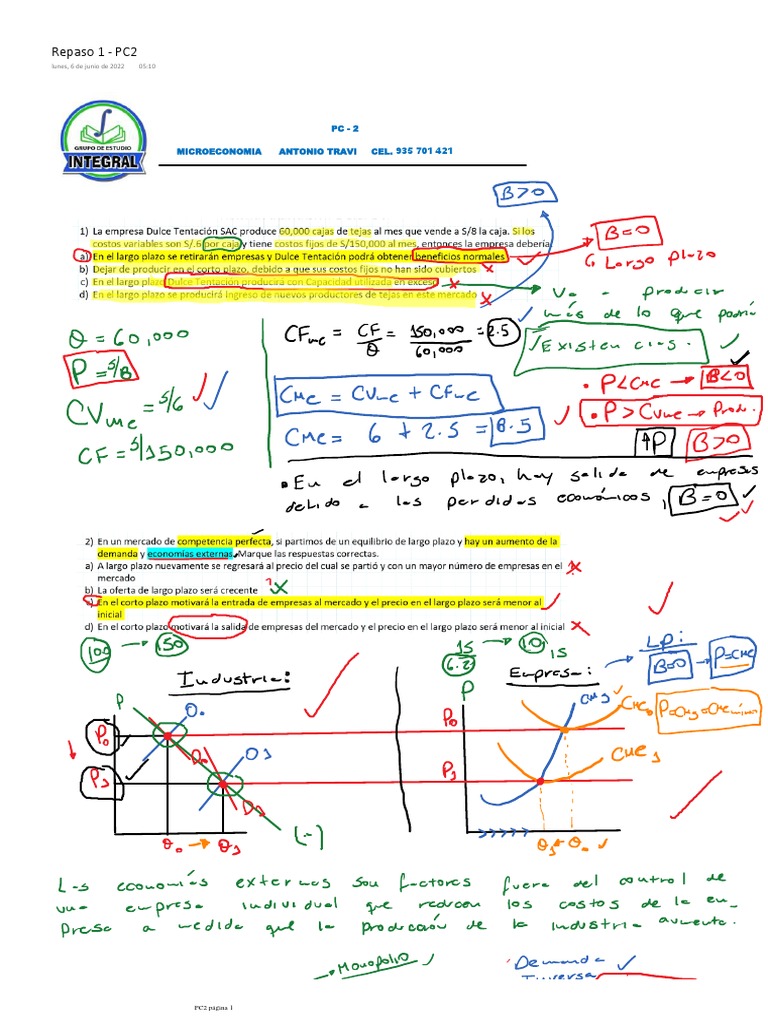 Repaso 1 - PC2
lunes, 6 de junio de 2022 05:10
GRUPO DE ESTUDIO
INTEGRAL
PC - 2
MICROECONOMIA ANTONIO TRAVI CEL. 935 701 421
B>0
1) La empresa Dulce Tentación SAC produce 60,000 cajas de tejas al mes que vende a S/8 la caja. Si los
costos variables son S/.6 por caja y tiene costos fijos de S/150,000 al mes, entonces la empresa debería:
a) En el largo plazo se retirarán empresas y Dulce Tentación podrá obtener beneficios normales
b) Dejar de producir en el corto plazo, debido a que sus costos fijos no han sido cubiertos
c) En el largo plazo Dulce Tentación producirá con Capacidad utilizada en exceso
d) En el largo plazo se producirá ingreso de nuevos productores de tejas en este mercado
B=0
Largo plazo
Va a producir
más de lo que podría
Existencias.
Q = 60,000
P = S/8
CVMC = S/6
CF = S/150,000
CFMC = CF/Q = 150,000/60,000 = 2.5
CMC = CVMC + CFMC
CMC = 6 + 2.5 = 8.5
• P<CMC → B<0
• P > CVMC → Prod.
↑P B>0
• En el largo plazo, hay salida de empresas
debido a las perdidas económicas, B=0
2) En un mercado de competencia perfecta, si partimos de un equilibrio de largo plazo y hay un aumento de la
demanda y economías externas. Marque las respuestas correctas.
a) A largo plazo nuevamente se regresará al precio del cual se partió y con un mayor número de empresas en el
mercado
b) La oferta de largo plazo será crecente
c) En el corto plazo motivará la entrada de empresas al mercado y el precio en el largo plazo será menor al
inicial
d) En el corto plazo motivará la salida de empresas del mercado y el precio en el largo plazo será menor al inicial
100 → 150
Industria:
P
P0
P1
O0
O1
D0
D1
(-)
Q0 → Q1
15
Empresa:
LP:
B=0 → P=CMC
P
P0
P1
CMC0
CMC1
Q1 ← Q0
Las economías externas son factores fuera del control de
una empresa individual que reducen los costos de la em-
presa a medida que la producción de la industria aumenta.
Monopolio
Demanda
PC2 página 1